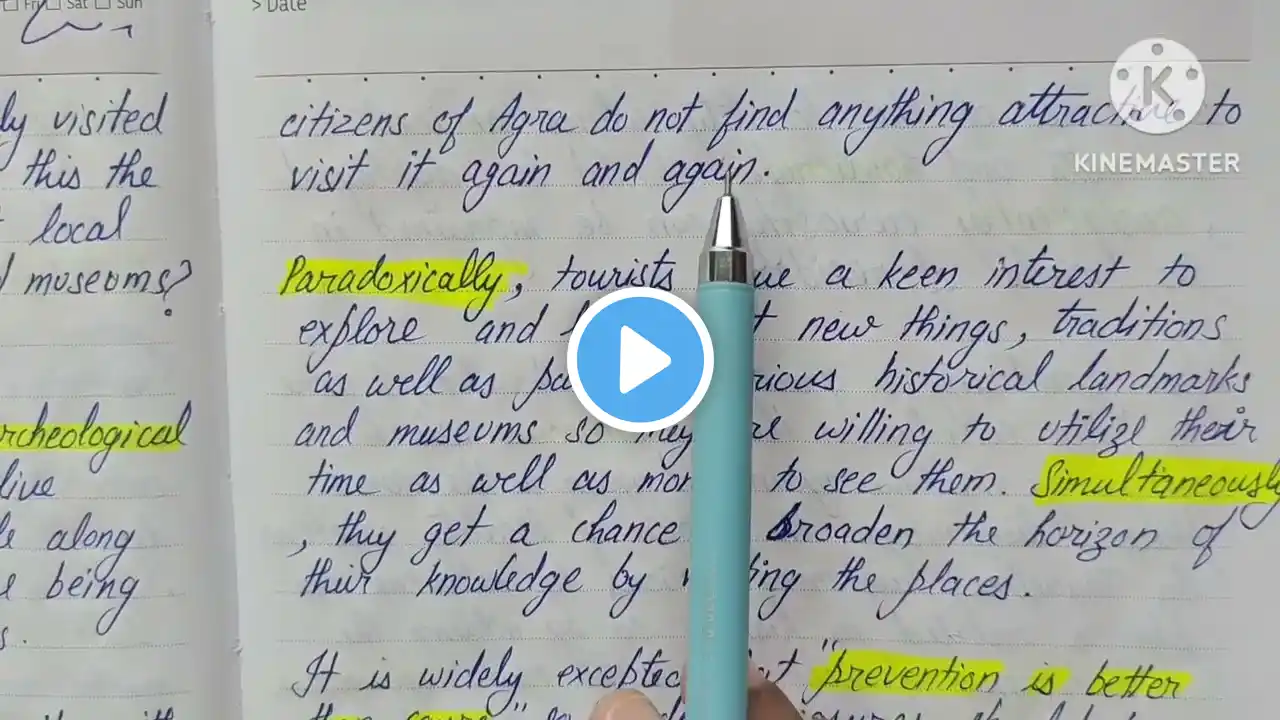 Fri Sat Sun
> Date
ly visited
this the
local
museums?
rcheological
live
along
being
s.
citizens of Agra do not find anything attractive to
visit it again and again.
Paradoxically, tourists a keen interest to
explore and new things, traditions
as well as historical landmarks
and museums so they willing to utilize their
time as well as to see them. Simultaneously
, they get a chance broaden the horizon of
their knowledge by the places.
It is widely "prevention is better
KINEMASTER